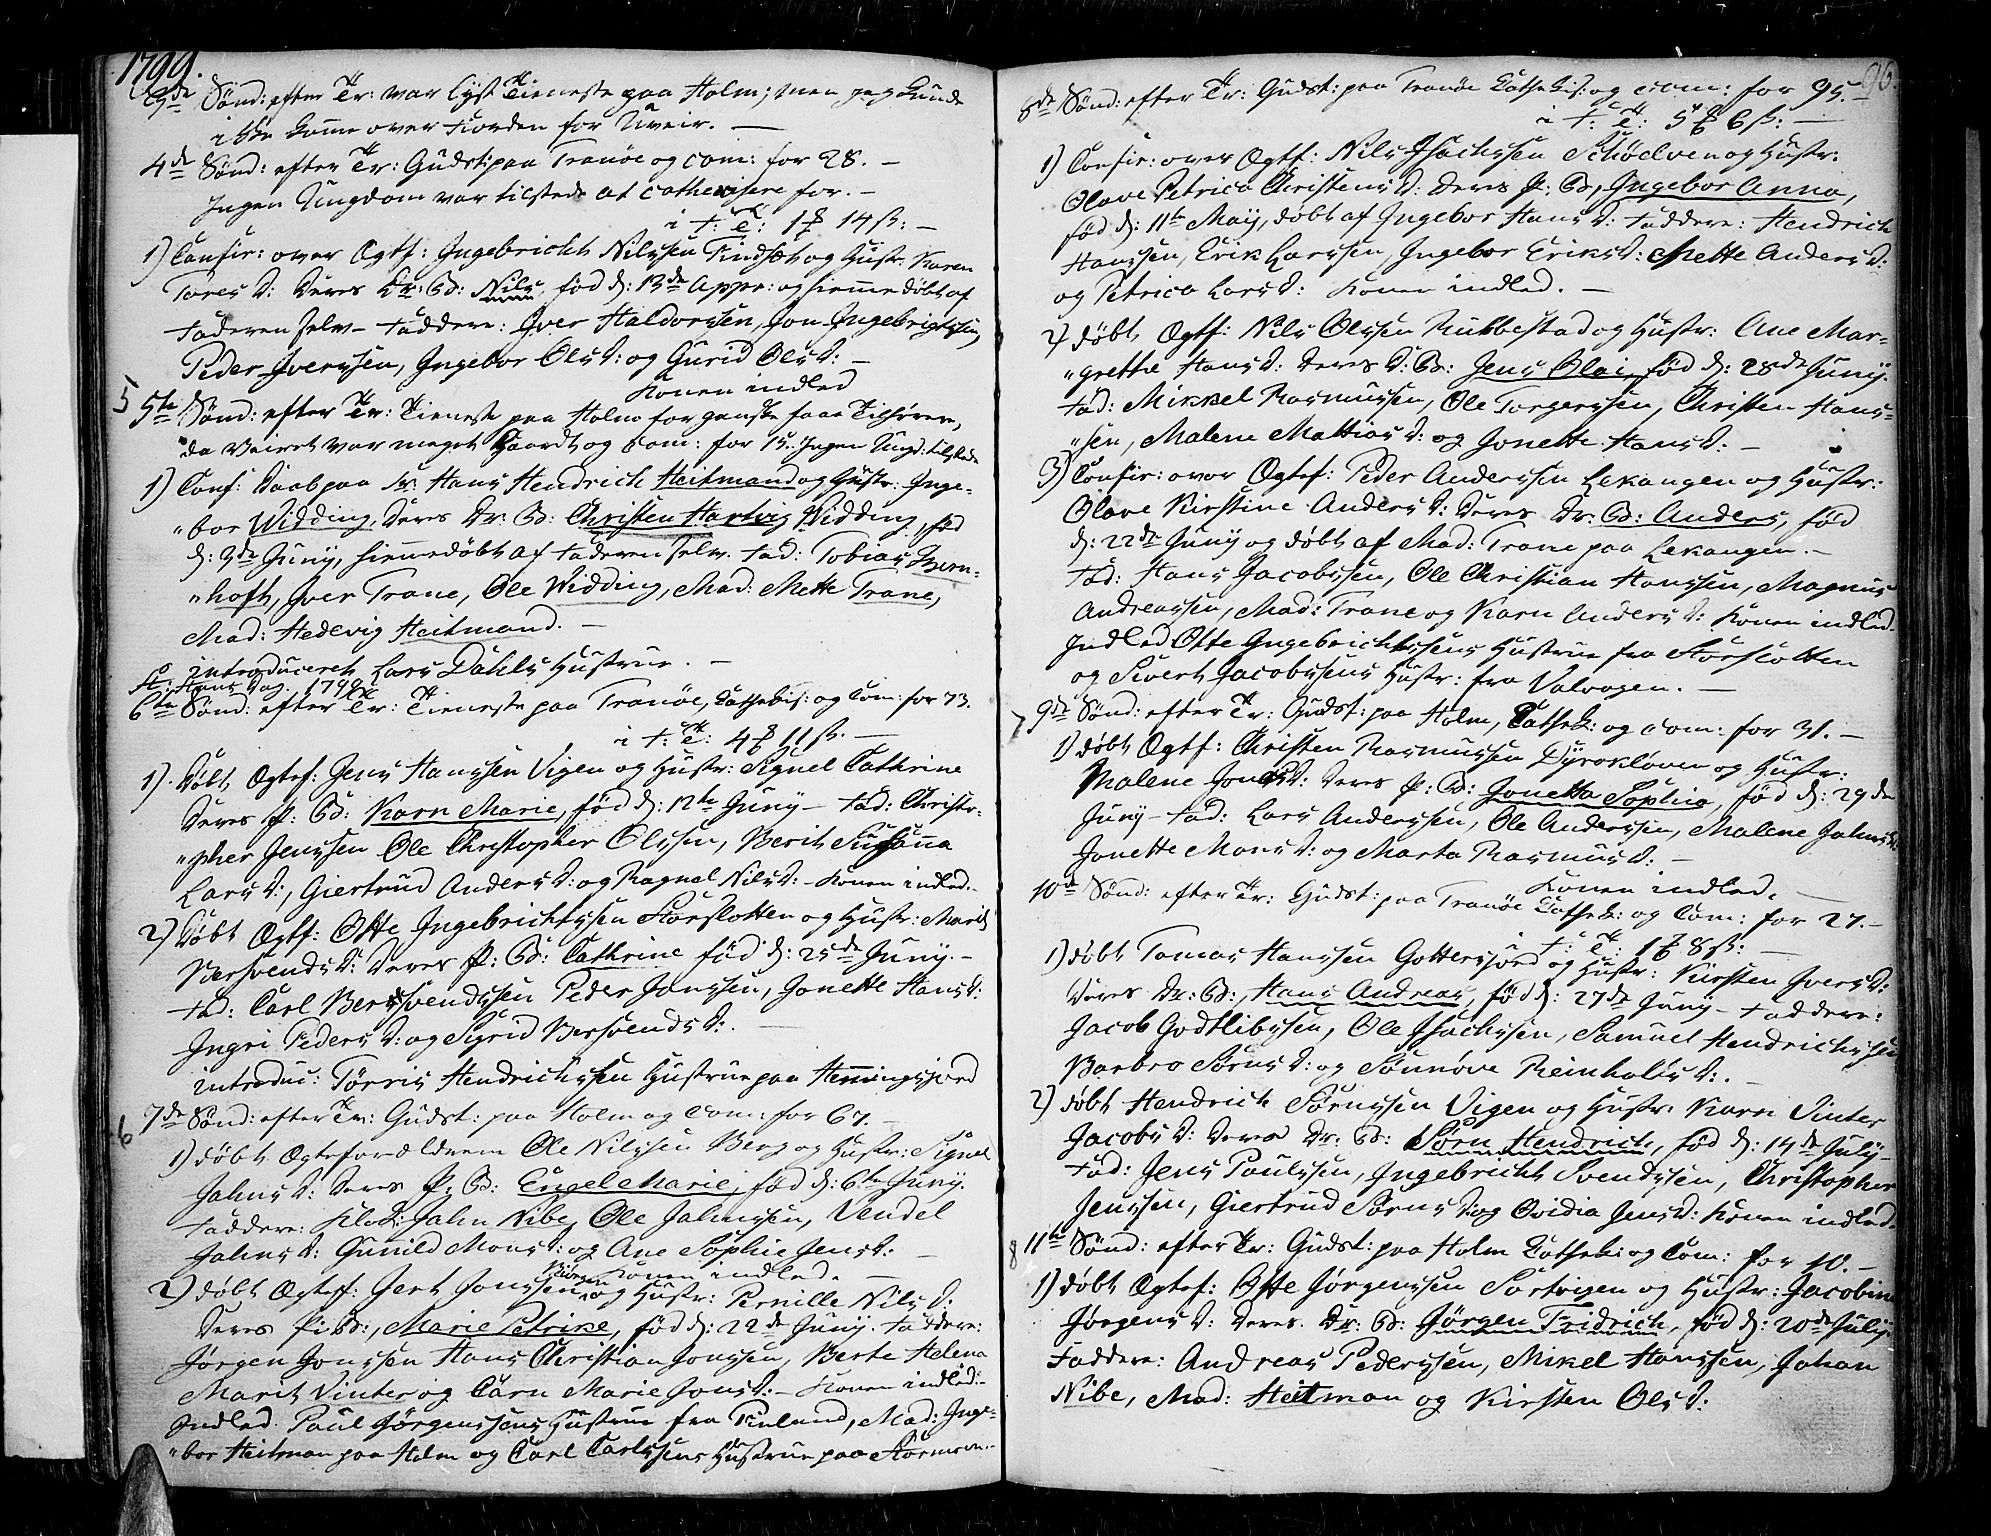 1799.
Sønd: efter Tr: var lyst Tieneste paa Holm; men jeg kunde
i kke komme over Fiorden for Uveir. —
4de Sønd: efter Tr: Gudst: paa Tranöe og Com: for 28. —
Ingen Ungdom var tilstede at Cathexisere for. —
i T: T: 1 14 ß: —
1) Confir: over Ægtf: Ingebricht Nilssen Tindsæt og Hustr: Karen
Tores D: deres Dr: B: Nils, föd d: 13de Appr: og hiemmedöbt af
Faderen selv — Faddere: Iver Haldorssen, Jon Ingebrigtssen,
Peder Iverssen, Ingebor Ols D: og Gurid Ols D: —
Konen indled
5 5te Sønd: efter Tr: Tieneste paa Holm for ganske faae Tilhörere,
da Veiret var meget haardt og Com: for 15. Ingen Ungd: tilstede
1) Conf: Daab paa Sr: Hans Hendrich Heitmand og Hustr: Inge-
"bor Widding, deres Dr: B: Christen Hartvig Widding, föd
d: 3de Junij, hiemmedöbt af Faderen selv. Fad: Tobias Bern-
"hoft, Iver Trane, Ole Widding, Mad: Mette Trane,
Mad: Hedevig Heitmand. —
introduceret Lars Dahls Hustrue. —
St: Hans Dag. 1799
6te Sønd: efter Tr: Tieneste paa Tranöe, Cathekis: og Com: for 73.
i T: T: 4 11 ß. —
1). Döbt Ægtef: Jens Hanssen Vigen og Hustr: Signel Cathrine
deres P: B: Karn Marie, föd d: 12te Junij — Fad: Christo-
"pher Jenssen Ole Christopher Olssen, Berit Susanna
Lars D:, Giertrud Anders D: og Ragnel Nils D: — Konen indled.
2) Döbt Ægtf: Otte Ingebrichtssen Storslotten og Hustr: Marit
Bersvends D: deres P: B: Cathrine föd d: 25de Junij. —
Fad: Carl Bersvendssen Peder Jonssen, Jonette Hans D:
Ingri Peders D: og Sigrid Bersvends D:. —
introduc: Törris Hendrichssen Hustrue paa Hemmingsjord
6 7de Sønd: efter Tr: Gudst: paa Holm og Com: for 67. —
1) döbt Ægteforældrene Ole Nilssen Berg og Hustr: Signel
Jahns D: deres P: B: Engel Marie, föd d: 6te Junij.
Faddere: Klok: Jahn Nibe, Ole Jahnssen, Vendel
Jahns D: Gunild Mons D: og Ane Sophie Jens D: —
Konen indled. —
2) döbt Ægtef: Gert Jonssen Biörgen og Hustr: Pernille Nils D:
deres Pi: B:, Marie Petrike, föd d: 22de Junij. Faddere:
Jørgen Jonssen Hans Christian Jonssen, Berte Helena
Marit Vinter og Carn Marie Jons D: — Konen indled: —
Indled: Paul Jørgenssens Hustrue fra Finland, Mad: Inge-
"bor Heitman paa Holm og Carl Carlssens Hustrue paa
96.
8de Sønd: efter Tr: Gudst: paa Tranöe Cathekis: og Com: for 95. —
i T: T: 5 6 ß: —
1) Confir: over Ægtf: Nils Isachssen Schöelven og Hustr:
Olave Petrica Christens D: deres P: B, Ingebor Anna,
föd d: 11te Maij, döbt af Ingebor Hans D: Faddere: Hendrich
Hanssen, Erik Larssen, Ingebor Eriks D: Mette Anders D:
og Petrica Lars D: Konen indled. —
2) döbt Ægtf: Nils Olssen Rubbestad og Hustr: Ane Mar-
"grethe Hans D: deres D: B: Jens Olai, föd d: 28de Junij.
Fad: Mikkel Rasmussen, Ole Torgerssen, Christen Hans-
"sen, Malene Mattias D: og Jonette Hans D: —
3) Confir: over Ægtef: Peder Anderssen Lekangen og Hustr:
Olave Kirstine Anders D: deres Dr: B: Anders, föd
d: 22de Junij og döbt af Mad: Trane paa Lekangen. —
Fad: Hans Jacobssen, Ole Christian Hanssen, Magnus
Andreassen, Mad: Trane og Karn Anders D: Konen indled.
Indled Otte Ingebrichtssens Hustrue fra Storslotten
og Sivert Jacobssens Hustr: fra Valvagen. —
7 9de Sønd: efter Tr: Gudst: paa Holm, Cathek: og Com: for 31. —
1) döbt Ægtf: Christen Rasmussen Dyrekloven og Hustr:
Malene Jons D: deres P: B: Jonetta Sophia, föd d: 29de
Junij — Fad: Lars Anderssen, Ole Anderssen, Malene Jahns D:
Jonette Mons D: og Marta Rasmus D: —
Konen indled. —
10de Sønd: efter Tr: Gudst: paa Tranöe Cathek: og Com: for 27. —
i T: T: 1 8 ß: —
1) döbt Tomas Hanssen Gottersjord og Hustr: Kirsten Ivers D:
deres Dr: B:, Hans Andreas, föd d: 27de Junij — Faddere:
Jacob Godtlibssen, Ole Isachssen, Samuel Hendrichssen
Barbro Sörns D: og Sunnöve Reinholds D:. —
2) döbt Hendrich Sörnssen Vigen og Hustr: Karn Vinter
Jacobs D: deres Dr: B: Sörn Hendrich, föd d: 14de July —
Fad: Jens Paulssen, Ingebricht Svendssen, Christopher
Jenssen, Giertrud Sörns D: og Ovidia Jens D: Konen indled.
8 11te Sønd: efter Tr: Gudst: paa Holm Cathek: og Com: for 10. —
1) döbt Ægtef: Otte Jørgenssen Sortvigen og Hustr: Jacobine
Jørgens D: deres Dr: B: Jörgen Fridrich, föd d: 20de July.
Faddere: Andreas Pederssen, Mikel Hanssen, Johan
Nibe, Mad: Heitman og Kirsten Ols D: